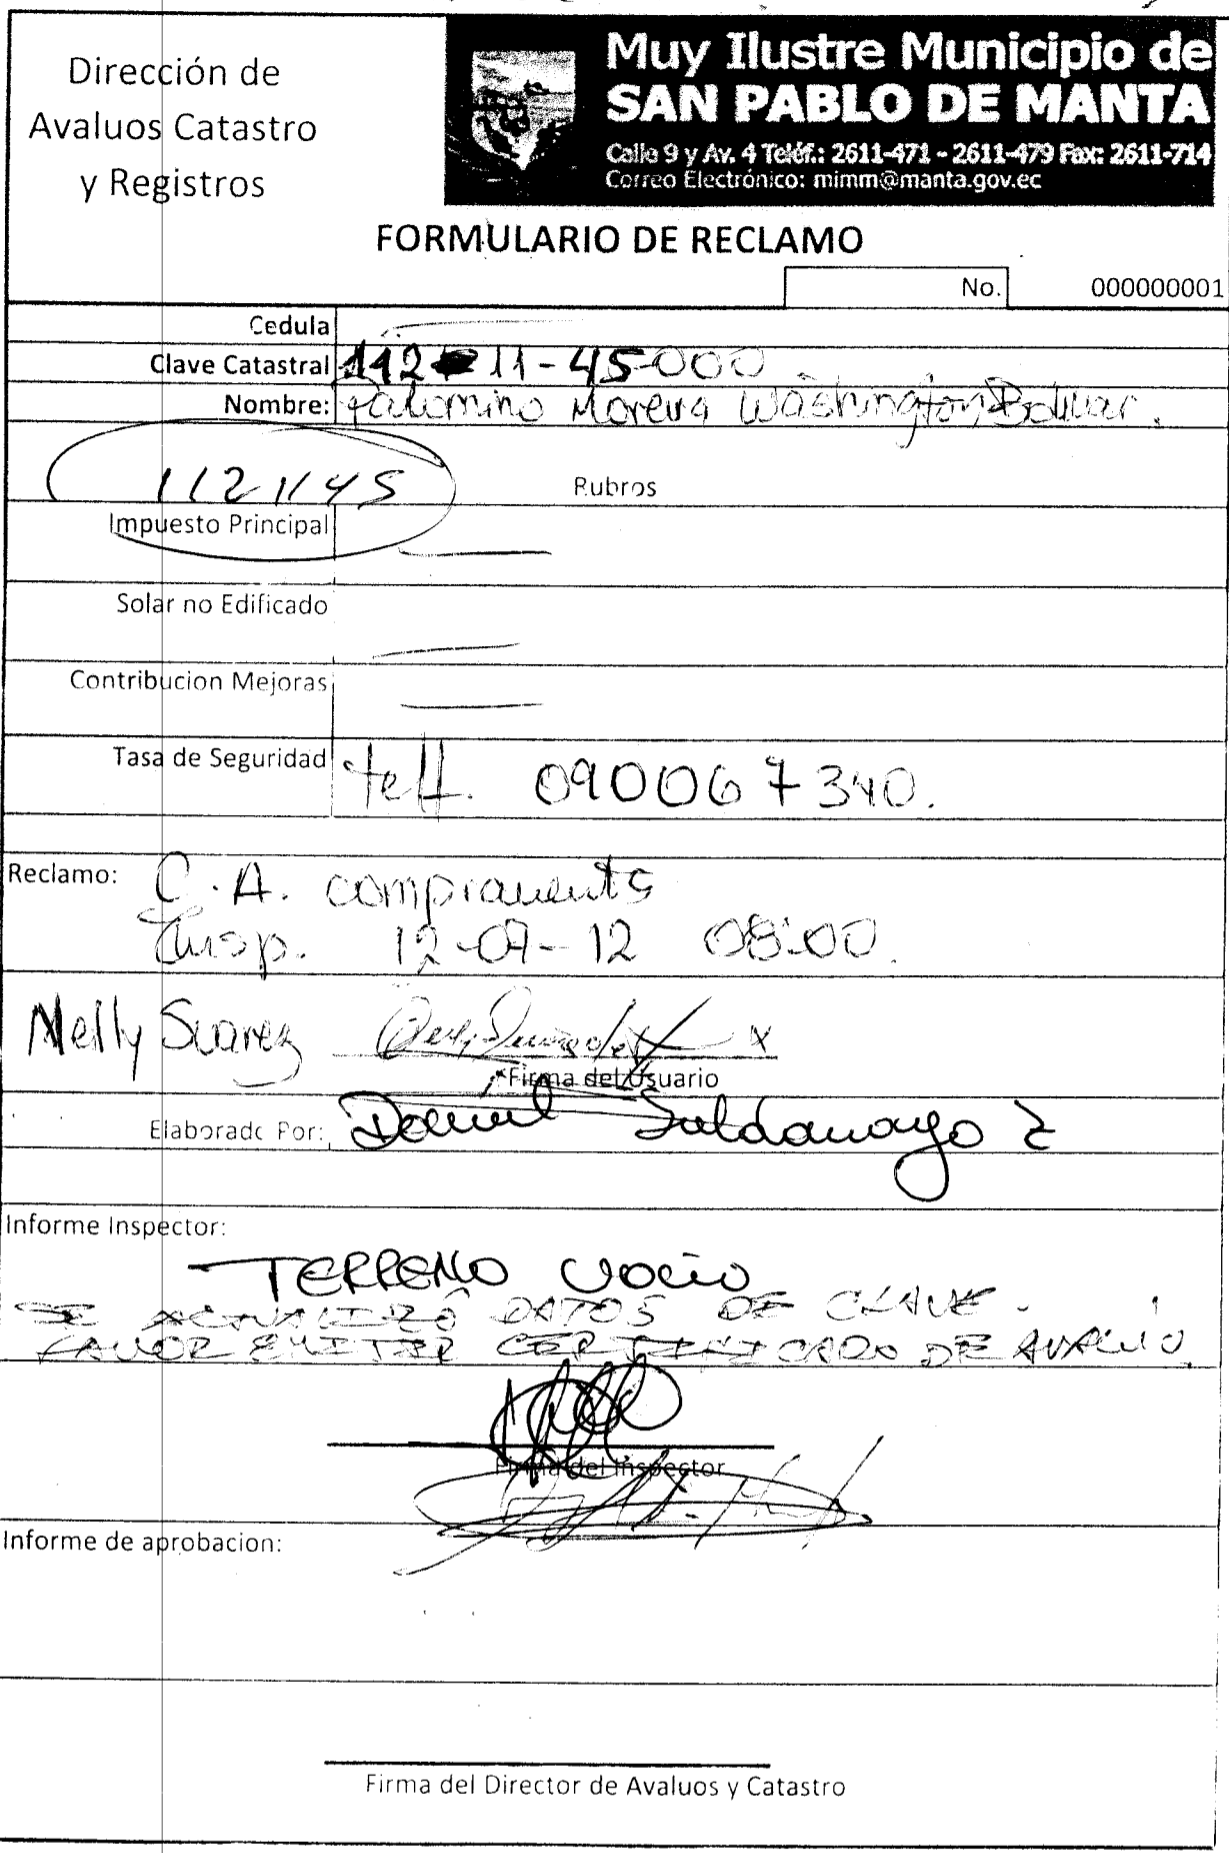 Dirección de
Avaluos Catastro
y Registros
Muy Ilustre Municipio de
SAN PABLO DE MANTA
Calle 9 y Av. 4 Teléf.: 2611-471 - 2611-479 Fax: 2611-714
Correo Electrónico: mimm@manta.gov.ec
FORMULARIO DE RECLAMO
No. 000000001
Cedula
Clave Catastral 112-11-45-000
Nombre: Palomino Moreira Washington Bolivar.
1121145
Rubros
Impuesto Principal
Solar no Edificado
Contribucion Mejoras
Tasa de Seguridad telf. 090067340.
Reclamo: C.A. compraventa
Insp. 12-09-12 08:00.
Nelly Suarez X
Firma del Usuario
Elaborado Por: Daniel Saldarriaga Z
Informe Inspector:
TERRENO Vacio
SE ACTUALIZÓ DATOS DE CLAVE.
FAVOR EMITIR CERTIFICADO DE AVALUO.
Firma del Inspector
Informe de aprobacion:
Firma del Director de Avaluos y Catastro